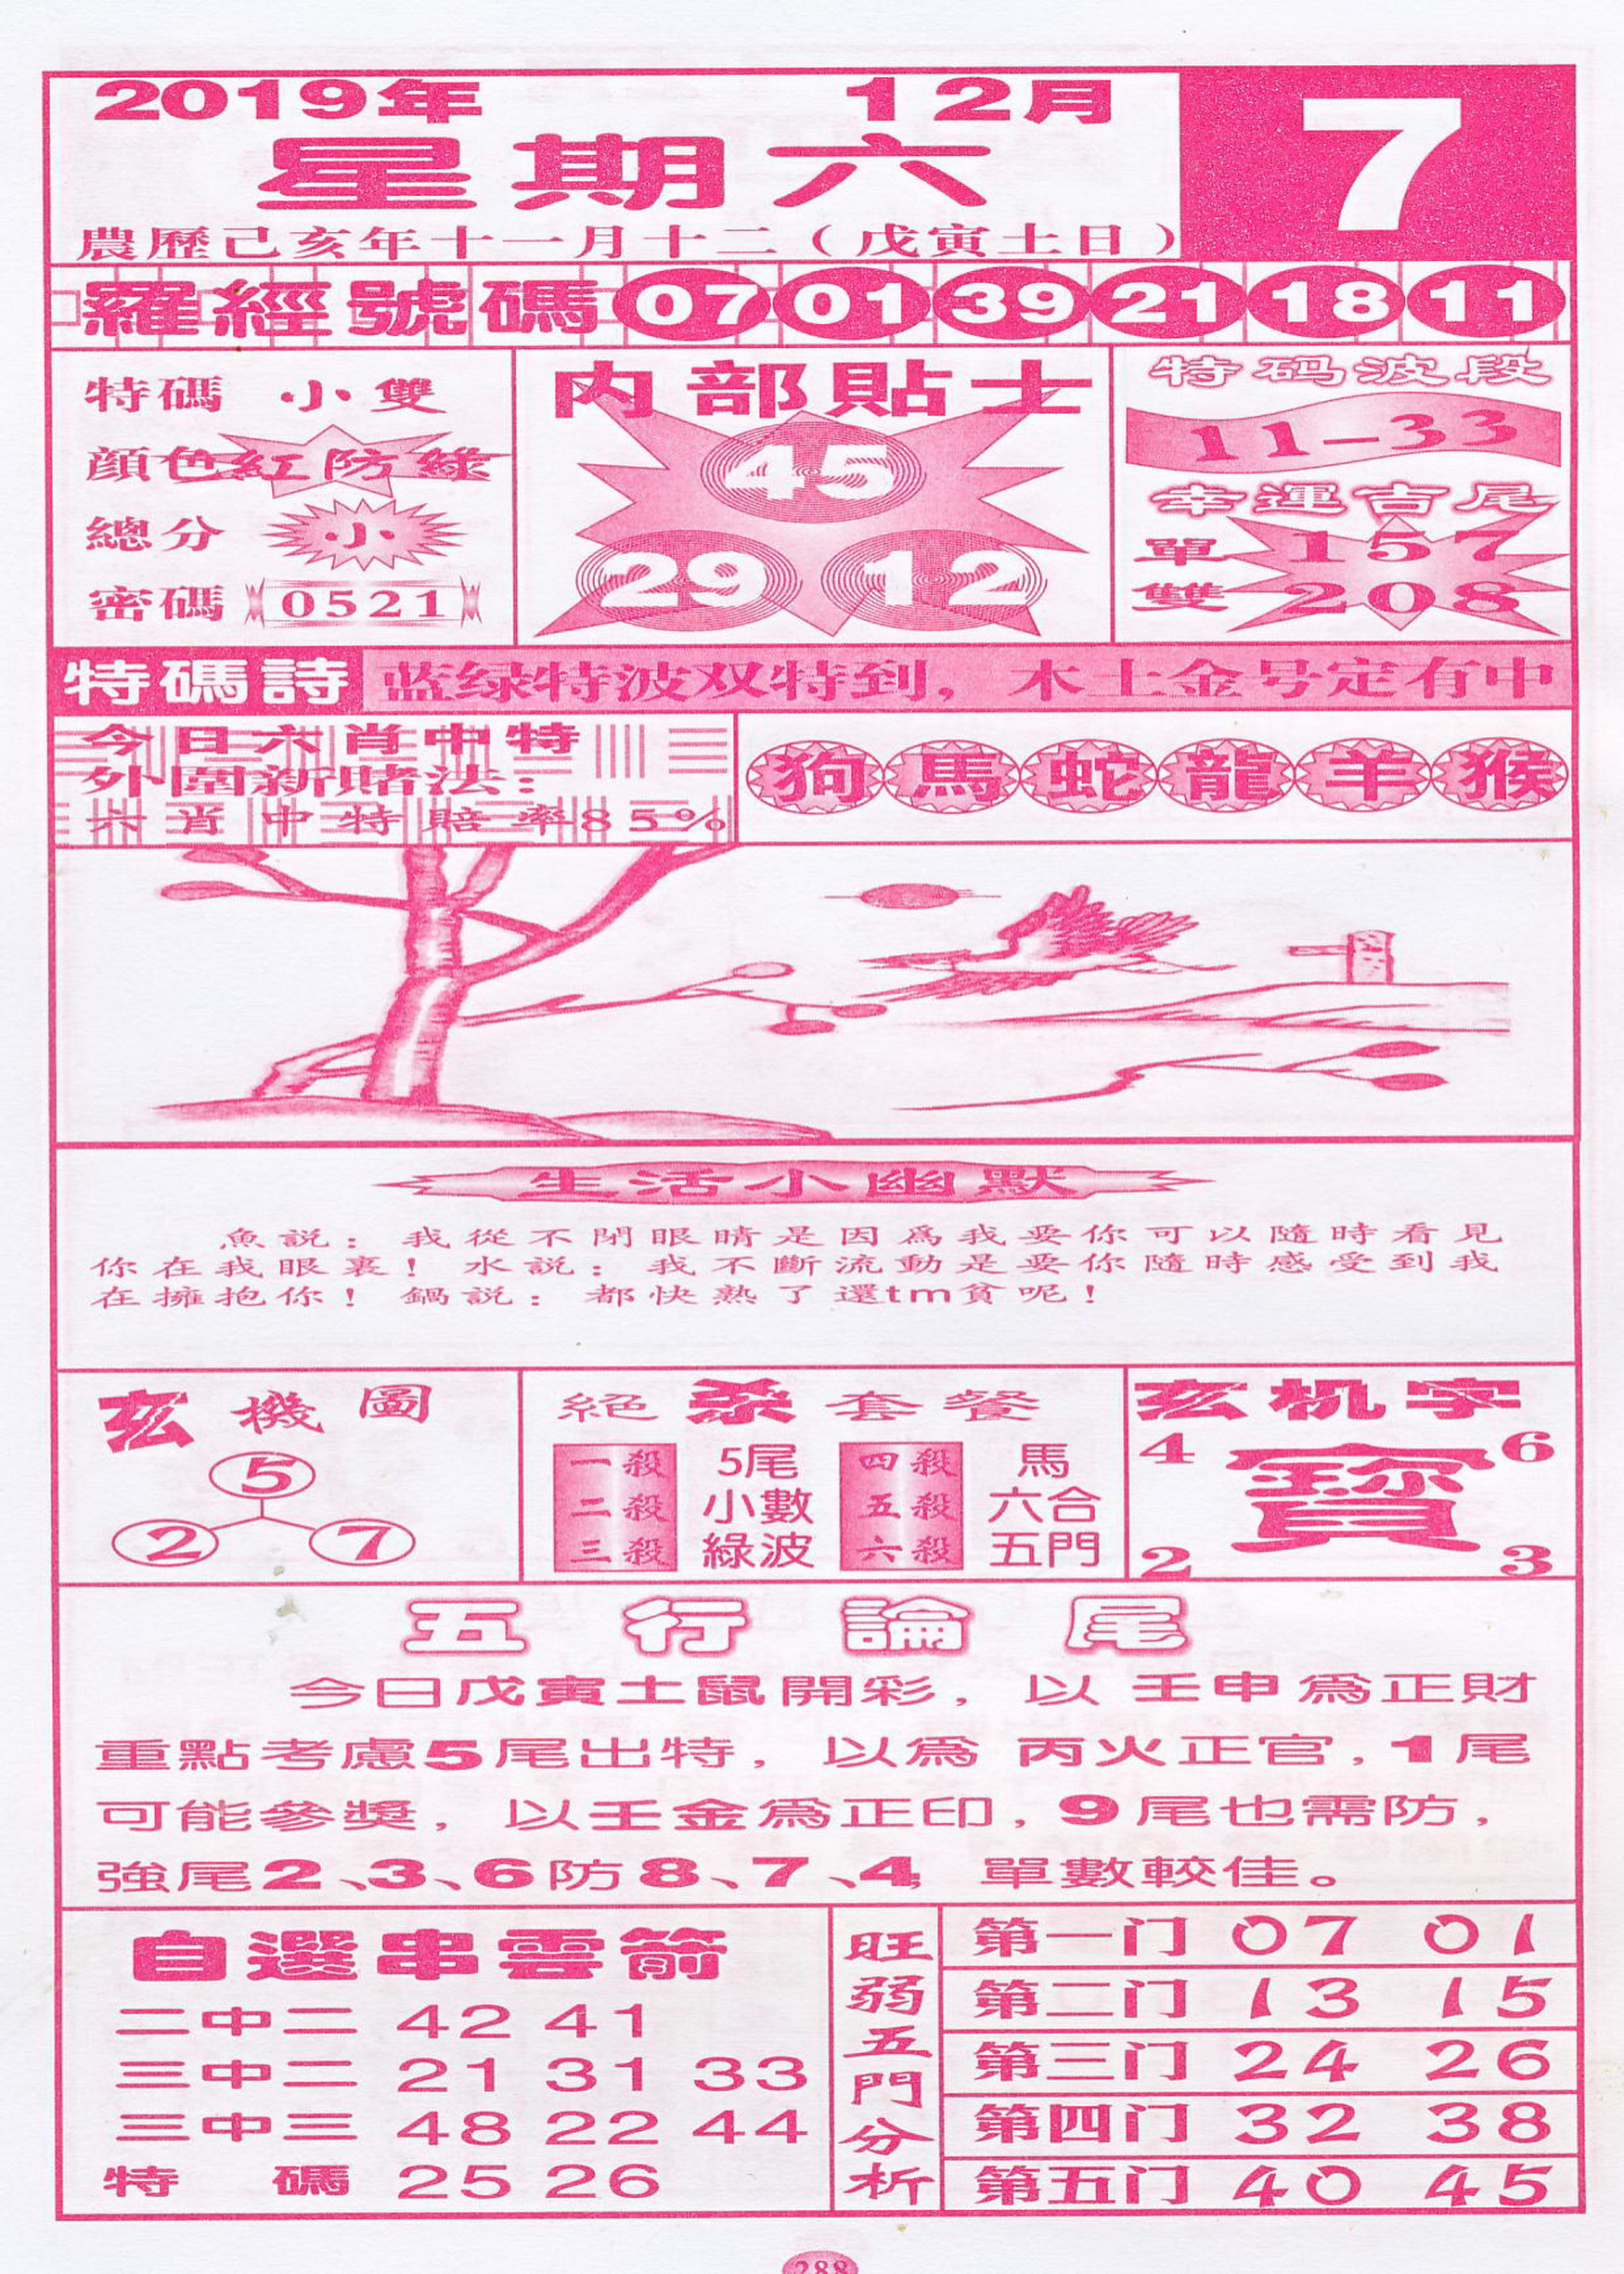 2019年 12月 7
星期六
農歷己亥年十一月十二（戊寅土日）
羅經號碼 07 01 39 21 18 11
特碼 小雙
顔色紅防綠
總分 小
密碼 0521
内部貼士
45
29 12
特码波段
11-33
幸運吉尾
單 157
雙 208
特碼詩 蓝绿特波双特到，木土金号定有中
今日六肖中特
外圍新賭法：
六肖中特賠率85%
狗 馬 蛇 龍 羊 猴
生活小幽默
魚説：我從不閉眼睛是因爲我要你可以隨時看見
你在我眼裏！水説：我不斷流動是要你隨時感受到我
在擁抱你！鍋説：都快熟了還tm貧呢！
玄機圖
5
2 7
絕殺套餐
一殺 5尾 四殺 馬
二殺 小數 五殺 六合
三殺 綠波 六殺 五門
玄机字
4 6
寶
2 3
五行論尾
今日戊寅土鼠開彩，以 壬申爲正財
重點考慮5尾出特，以爲 丙火正官，1尾
可能參獎，以壬金爲正印，9尾也需防，
強尾2、3、6防8、7、4, 單數較佳。
自選串雲箭
二中二 42 41
三中二 21 31 33
三中三 48 22 44
特碼 25 26
旺弱五門分析
第一门 07 01
第二门 13 15
第三门 24 26
第四门 32 38
第五门 40 45
288